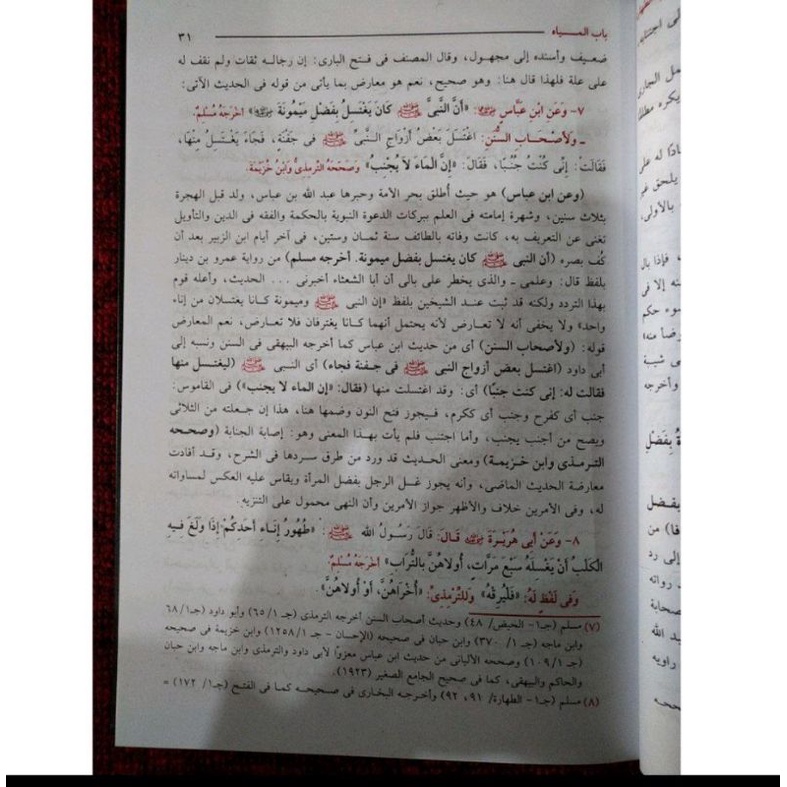 باب المياه ٣١
ضعيف وأسنده إلى مجهول، وقال المصنف فى فتح البارى: إن رجاله ثقات ولم نقف له
على علة فلهذا قال هنا: وهو صحيح، نعم هو معارض بما يأتى من قوله فى الحديث الآتى:
٧- وَعَنِ ابْنِ عَبَّاسٍ رضي الله عنهما: «أَنَّ النَّبىَّ ﷺ كَانَ يَغْتَسِلُ بِفَضْلِ مَيْمُونَةَ رضي الله عنها» أخرجَهُ مُسْلِمٌ.
ـ ولأصْحَابِ السُّنَنِ: اغْتَسَلَ بَعْضُ أَزْوَاجِ النَّبىِّ ﷺ فى جَفْنَةٍ، فَجَاءَ يَغْتَسِلُ مِنْهَا،
فَقَالَتْ: إِنِّى كُنْتُ جُنُبًا، فَقَالَ: «إِنَّ الْمَاءَ لاَ يُجْنِبُ» وَصَحَّحَهُ التِّرْمِذىُّ وَابْنُ خُزَيْمَةَ.
(وعن ابن عباس) هو حيث أطلق بحر الأمة وحبرها عبد الله بن عباس، ولد قبل الهجرة
بثلاث سنين، وشهرة إمامته فى العلم ببركات الدعوة النبوية بالحكمة والفقه فى الدين والتأويل
تغنى عن التعريف به، كانت وفاته بالطائف سنة ثمان وستين، فى آخر أيام ابن الزبير بعد أن
كُف بصره (أن النبى ﷺ كان يغتسل بفضل ميمونة. أخرجه مسلم) من رواية عمرو بن دينار
بلفظ قال: وعلمى ـ والذى يخطر على بالى أن أبا الشعثاء أخبرنى ... الحديث، وأعله قوم
بهذا التردد ولكنه قد ثبت عند الشيخين بلفظ «إن النبى ﷺ وميمونة كانا يغتسلان من إناء
واحد» ولا يخفى أنه لا تعارض لأنه يحتمل أنهما كانا يغترفان فلا تعارض، نعم المعارض
قوله: (ولأصحاب السنن) أى من حديث ابن عباس كما أخرجه البيهقى فى السنن ونسبه إلى
أبى داود (اغتسل بعض أزواج النبى ﷺ فى جفنة فجاء) أى النبى ﷺ (ليغتسل منها
فقالت له: إنى كنت جنبًا) أى: وقد اغتسلت منها (فقال: «إن الماء لا يجنب») فى القاموس:
جنب أى كفرح وجنب أى ككرم، فيجوز فتح النون وضمها هنا، هذا إن جعلته من الثلاثى
ويصح من أجنب يجنب، وأما اجتنب فلم يأت بهذا المعنى وهو: إصابة الجنابة (وصححه
الترمذى وابن خزيمة) ومعنى الحديث قد ورد من طرق سردها فى الشرح، وقد أفادت
معارضة الحديث الماضى، وأنه يجوز غسل الرجل بفضل المرأة ويقاس عليه العكس لمساواته
له، وفى الأمرين خلاف والأظهر جواز الأمرين وأن النهى محمول على التنزيه.
٨- وَعَنْ أَبى هُرَيْرَةَ رضي الله عنه قَالَ: قَالَ رَسُولُ الله ﷺ: «طُهُورُ إِنَاءِ أَحَدِكُمْ إِذَا وَلَغَ فِيهِ
الْكَلْبُ أَنْ يَغْسِلَهُ سَبْعَ مَرَّاتٍ، أُولاَهُنَّ بِالتُّرَابِ» أخرَجَهُ مُسْلِمٌ.
وَفى لَفْظٍ لَهُ: «فَلْيُرِقْهُ» وَلِلتِّرْمِذِىِّ: «أُخْرَاهُنَّ، أَوْ أُولاَهُنَّ».
(٧) مسلم (جـ١- الحيض/ ٤٨) وحديث أصحاب السنن أخرجه الترمذى (جـ ١/ ٦٥) وأبو داود (جـ١/ ٦٨
وابن ماجه (جـ ١/ ٣٧٠) وابن حبان فى صحيحه (الإحسان - جـ ١/ ١٢٥٨) وابن خزيمة فى صحيحه
(جـ ١/ ١٠٩) وصححه الألبانى من حديث ابن عباس معزوًا لأبى داود والترمذى وابن ماجه وابن حبان
والحاكم والبيهقى، كما فى صحيح الجامع الصغير (١٩٢٣).
(٨) مسلم (جـ١- الطهارة/ ٩١، ٩٢) وأخرجه البخارى فى صحيحه كما فى الفتح (جـ١/ ١٧٢) =